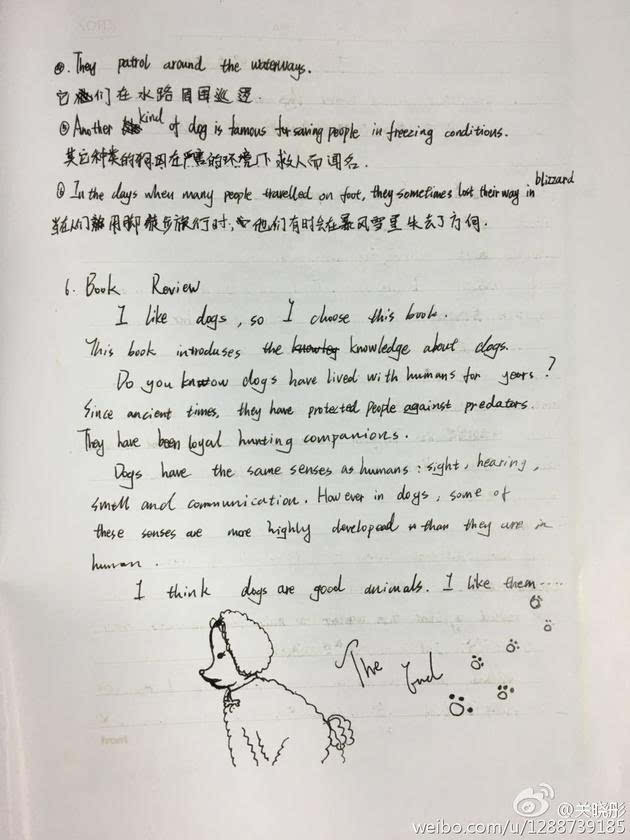 ④. They patrol around the waterways.
它们在水路周围巡逻.
⑤ Another kind of dog is famous for saving people in freezing conditions.
其它种类的狗因在严害的环境下救人而闻名.
⑥ In the days when many people travelled on foot, they sometimes lost their way in blizzard
当人们用脚散步旅行时, 他们有时会在暴风雪里失去了方向.
6. Book Review
I like dogs, so I choose this book.
This book introduses the knowledge about dogs.
Do you know dogs have lived with humans for years?
Since ancient times, they have protected people against predators.
They have been loyal hunting companions.
Dogs have the same senses as humans: sight, hearing,
smell and communication. However in dogs, some of
these senses are more highly developed than they are in
human.
I think dogs are good animals. I like them.....
The End
@关晓彤
weibo.com/u/1288739185